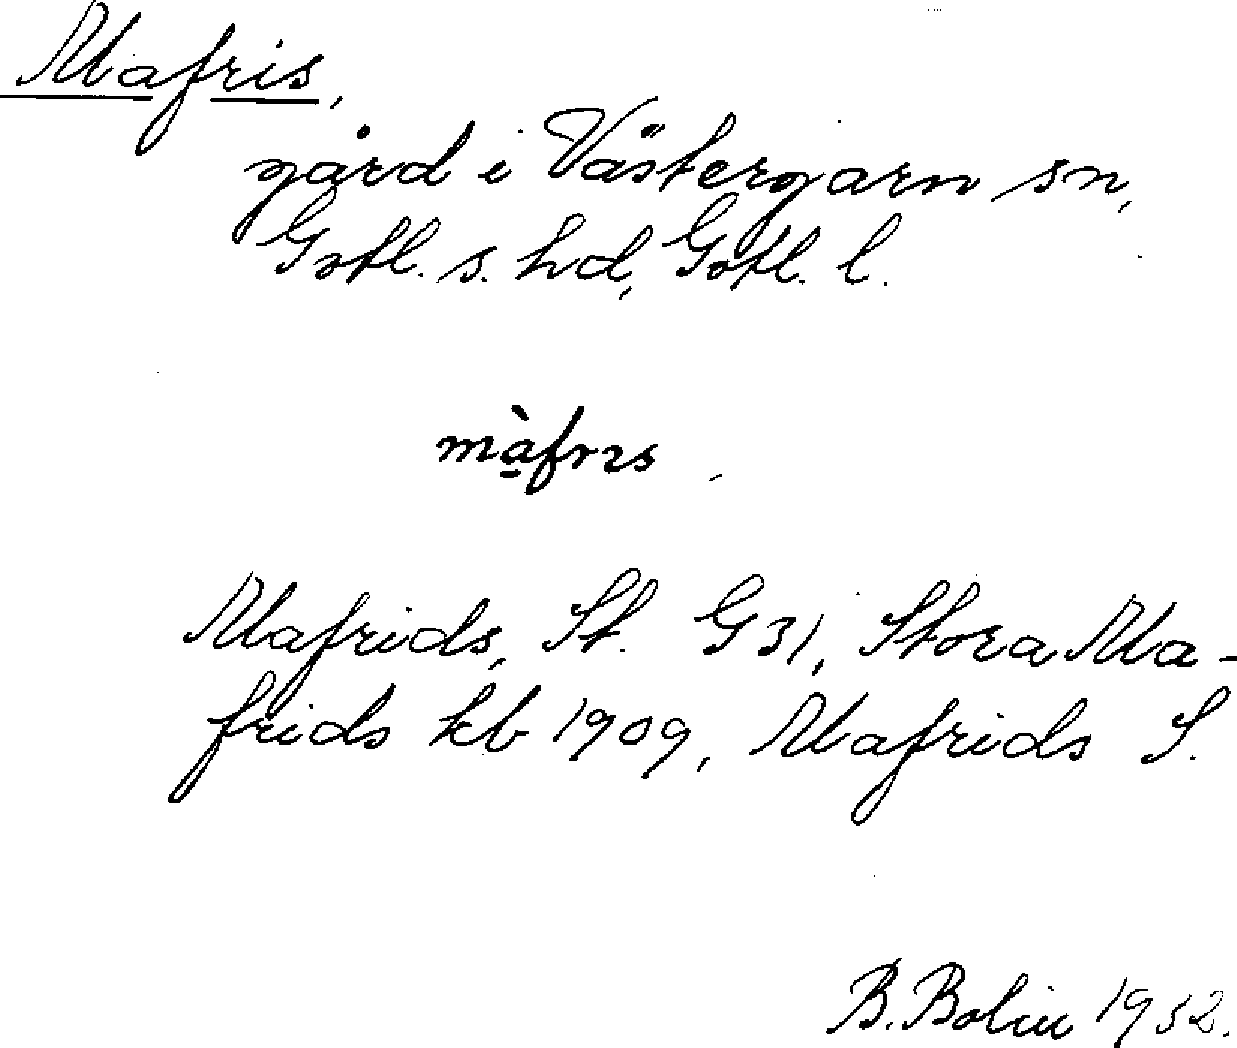 Mafris,
gård i Västergarn sn,
Gotl. s. hd, Gotl. l.
mà̱frɪs
Mafrids, St. G31, Stora Ma-
frids kb 1909, Mafrids S.
B. Bolin 1932.